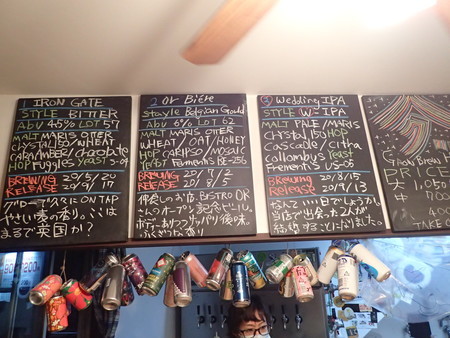 1 IRON GATE
STYLE BITTER
ABV 4.5% LOT 57
MALT MARIS OTTER
CRYSTAL 150 / WHEAT
CARAAMBER / Chocolate
HOP Fuggles Yeast S-04
BREWING 20/5/20
RELEASE 20/9/17
ON TAP
やさしい麦の香り。ここは
まるで英国か?
2 Or Bière
Stayle Belgian Gould
ABV 6% LOT 62
MALT MARIS OTTER
WHEAT / OAT / HONEY
HOP CALIPSO / MOSAIC
Yeast Ferments BE-256
BREWING 20/7/2
RELEASE 20/8/2
仲良しのお店、BISTRO OR
さんのオープン記念ビール。
ボディーありつつサッパリ後味。
3 Wedding IPA
STYLE W IPA
MALT PALE / MARIS
Crystal 150 HOP
Cascade / Citra
Collombus Yeast
Ferments US-05
BREWING 20/8/15
Release 20/9/13
なんと、いい日でしょうか。
当店で出会った2人が
結婚することになりました。
PRICE
大 1,050
中
TAKE O